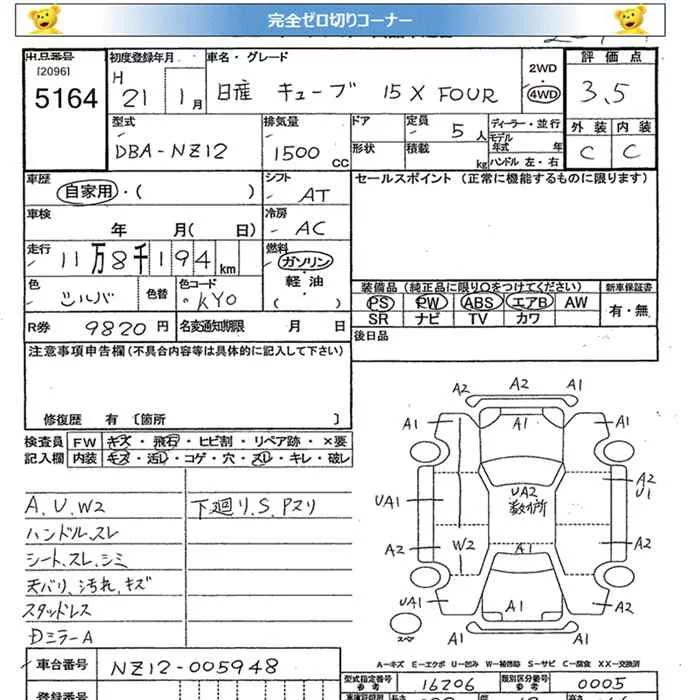 完全ゼロ切りコーナー
出品番号 初度登録年月 車名・グレード 2WD 評価点
[2096] H
5164 21 1月 日産 キューブ 15X FOUR 4WD 3.5
型式 排気量 ドア 定員 5人 ディーラー・並行 外装 内装
モデル年式 年
DBA-NZ12 1500CC 形状 積載 kg ハンドル 左・右 C C
車歴 シフト セールスポイント(正常に機能するものに限ります)
自家用・( ) AT
車検 冷房
年 月( 日) AC
走行 燃料
11万8千194km ガソリン
色 色替 色コード 軽油 装備品(純正品に限り〇をつけてください) 新車保証書
シルバ KYO ( ) PS PW ABS エアB AW 有・無
SR ナビ TV カワ
R券 9820円 名変通知期限 月 日 後日品
注意事項申告欄(不具合内容等は具体的に記入して下さい)
修復歴 有 〔箇所 〕
検査員 FW キズ・飛石・ヒビ割・リペア跡・×要
記入欄 内装 キズ・汚レ・コゲ・穴・スレ・キレ・破レ
A.U.W2 下廻り.S.Pスリ
ハンドル.スレ
シート.スレ.シミ
天バリ.汚れ.キズ
スタッドレス
Dミラー A
A2 A2 A1
A1 A1 A1
A2
U1
UA1 UA2
A2 W2 A1 A2
UA1 A1 A1
スペア
A2 A2 A1
A-キズ E-エクボ U-凹み W-補修跡 S-サビ C-腐食 XX-交換済
車台番号 NZ12-005948
型式指定番号 参考 16206 類別区分番号 参考 0005
登録番号